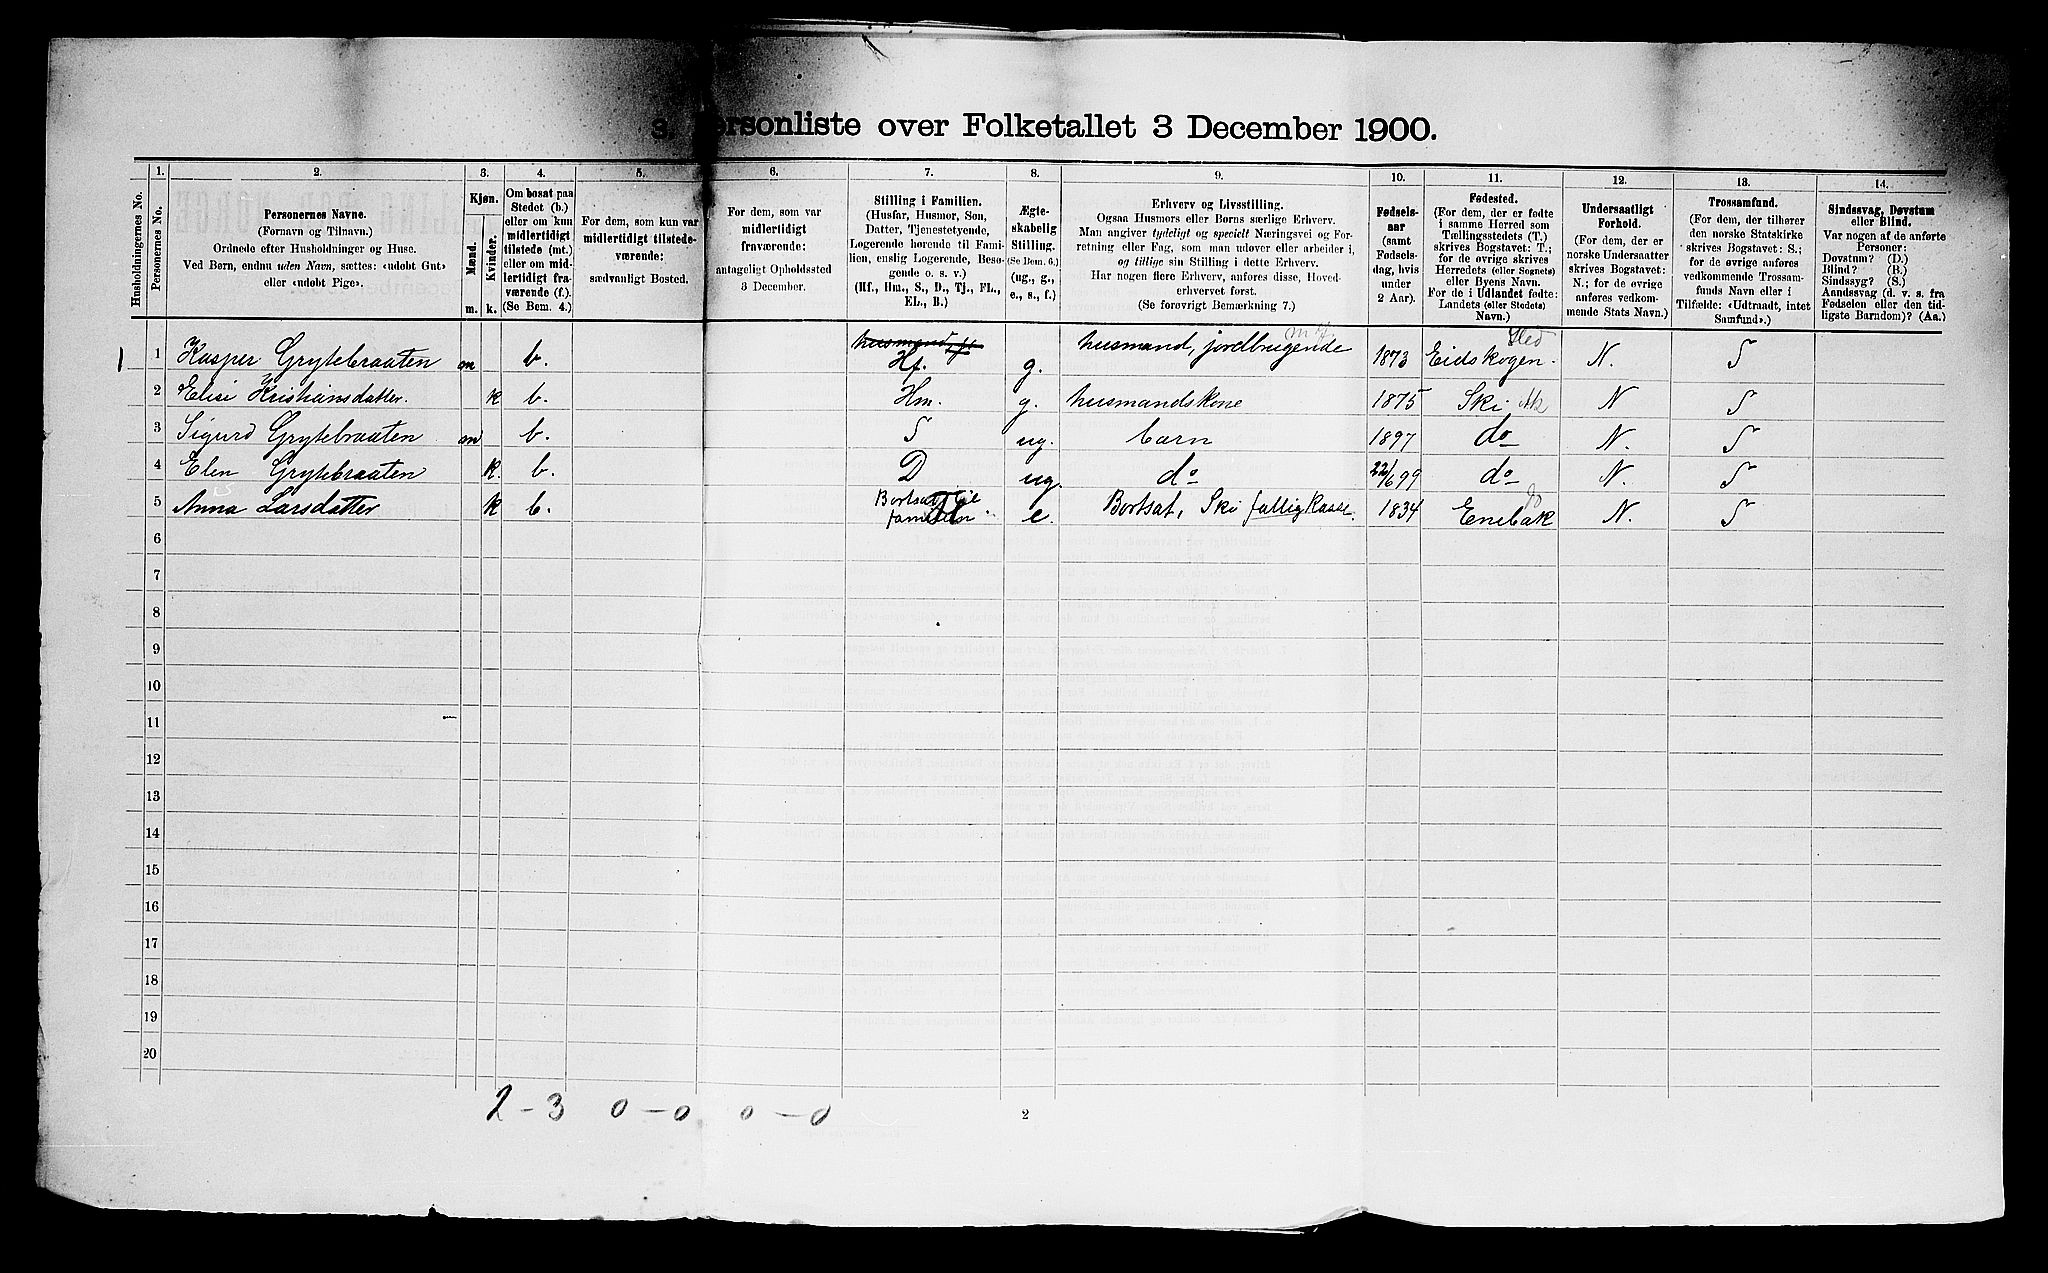 3. Personliste over Folketallet 3 December 1900.
Husholdningernes No.
1.
Personernes No.
2.
Personernes Navne.
(Fornavn og Tilnavn.)
Ordnede efter Husholdninger og Huse.
Ved Børn, endnu uden Navn, sættes: «udøbt Gut»
eller «udøbt Pige».
3.
Kjøn.
Mænd.
Kvinder.
m. k.
4.
Om bosat paa
Stedet (b.)
eller om kun
midlertidigt
tilstede (mt.)
eller om mid-
lertidigt fra-
værende (f.).
(Se Bem. 4.)
5.
For dem, som kun var
midlertidigt tilstede-
værende:
sædvanligt Bosted.
6.
For dem, som var
midlertidigt
fraværende:
antageligt Opholdssted
3 December.
7.
Stilling i Familien.
(Husfar, Husmor, Søn,
Datter, Tjenestetyende,
Logerende hørende til Fami-
lien, enslig Logerende, Besø-
gende o. s. v.)
(Hf., Hm., S., D., Tj., FL.,
EL., B.)
8.
Ægte-
skabelig
Stilling.
(Se Bem. 6.)
(ug., g.,
e., s., f.)
9.
Erhverv og Livsstilling.
Ogsaa Husmors eller Børns særlige Erhverv.
Man angiver tydeligt og specielt Næringsvei og For-
retning eller Fag, som man udøver eller arbeider i,
og tillige sin Stilling i dette Erhverv.
Har nogen flere Erhverv, anføres disse, Hoved-
erhvervet først.
(Se forøvrigt Bemærkning 7.)
10.
Fødsels-
aar
(samt
Fødsels-
dag, hvis
under
2 Aar).
11.
Fødested.
(For dem, der er fødte
i samme Herred som
Tællingsstedets (T.)
skrives Bogstavet: T.;
for de øvrige skrives
Herredets (eller Sognets)
eller Byens Navn.
For de i Udlandet fødte:
Landets (eller Stedets)
Navn.)
12.
Undersaatligt
Forhold.
(For dem, der er
norske Undersaatter
skrives Bogstavet:
N.; for de øvrige
anføres vedkom-
mende Stats Navn.)
13.
Trossamfund.
(For dem, der tilhører
den norske Statskirke
skrives Bogstavet: S.;
for de øvrige anføres
vedkommende Trossam-
funds Navn eller i
Tilfælde: «Udtraadt, intet
Samfund».)
14.
Sindssvag, Døvstum
eller Blind.
Var nogen af de anførte
Personer:
Døvstum? (D.)
Blind? (B.)
Sindssyg? (S.)
Aandssvag (d. v. s. fra
Fødselen eller den tid-
ligste Barndom)? (Aa.)
1 1 Kasper Grytebraaten m b. husmand Hf. g. husmand, jordbrugende 1873 Eidskogen. Hed N. S
2 Elisi Kristiansdatter. k b. Hm. g. husmandskone 1875 Ski Ak N S
3 Sigurd Grytebraaten m b. S ug. barn 1897 do N. S
4 Elen Grytebraaten k. b. D ug. do 22/6 99 do N. S
5 Anna Larsdatter k b. Bortsat til familien e. Bortsat, Ski fattigkasse. 1834 Enebak do N. S
6
7
8
9
10
11
12
13
14
15
16
17
18
19
20
2 - 3 0 - 0 0 - 0
2